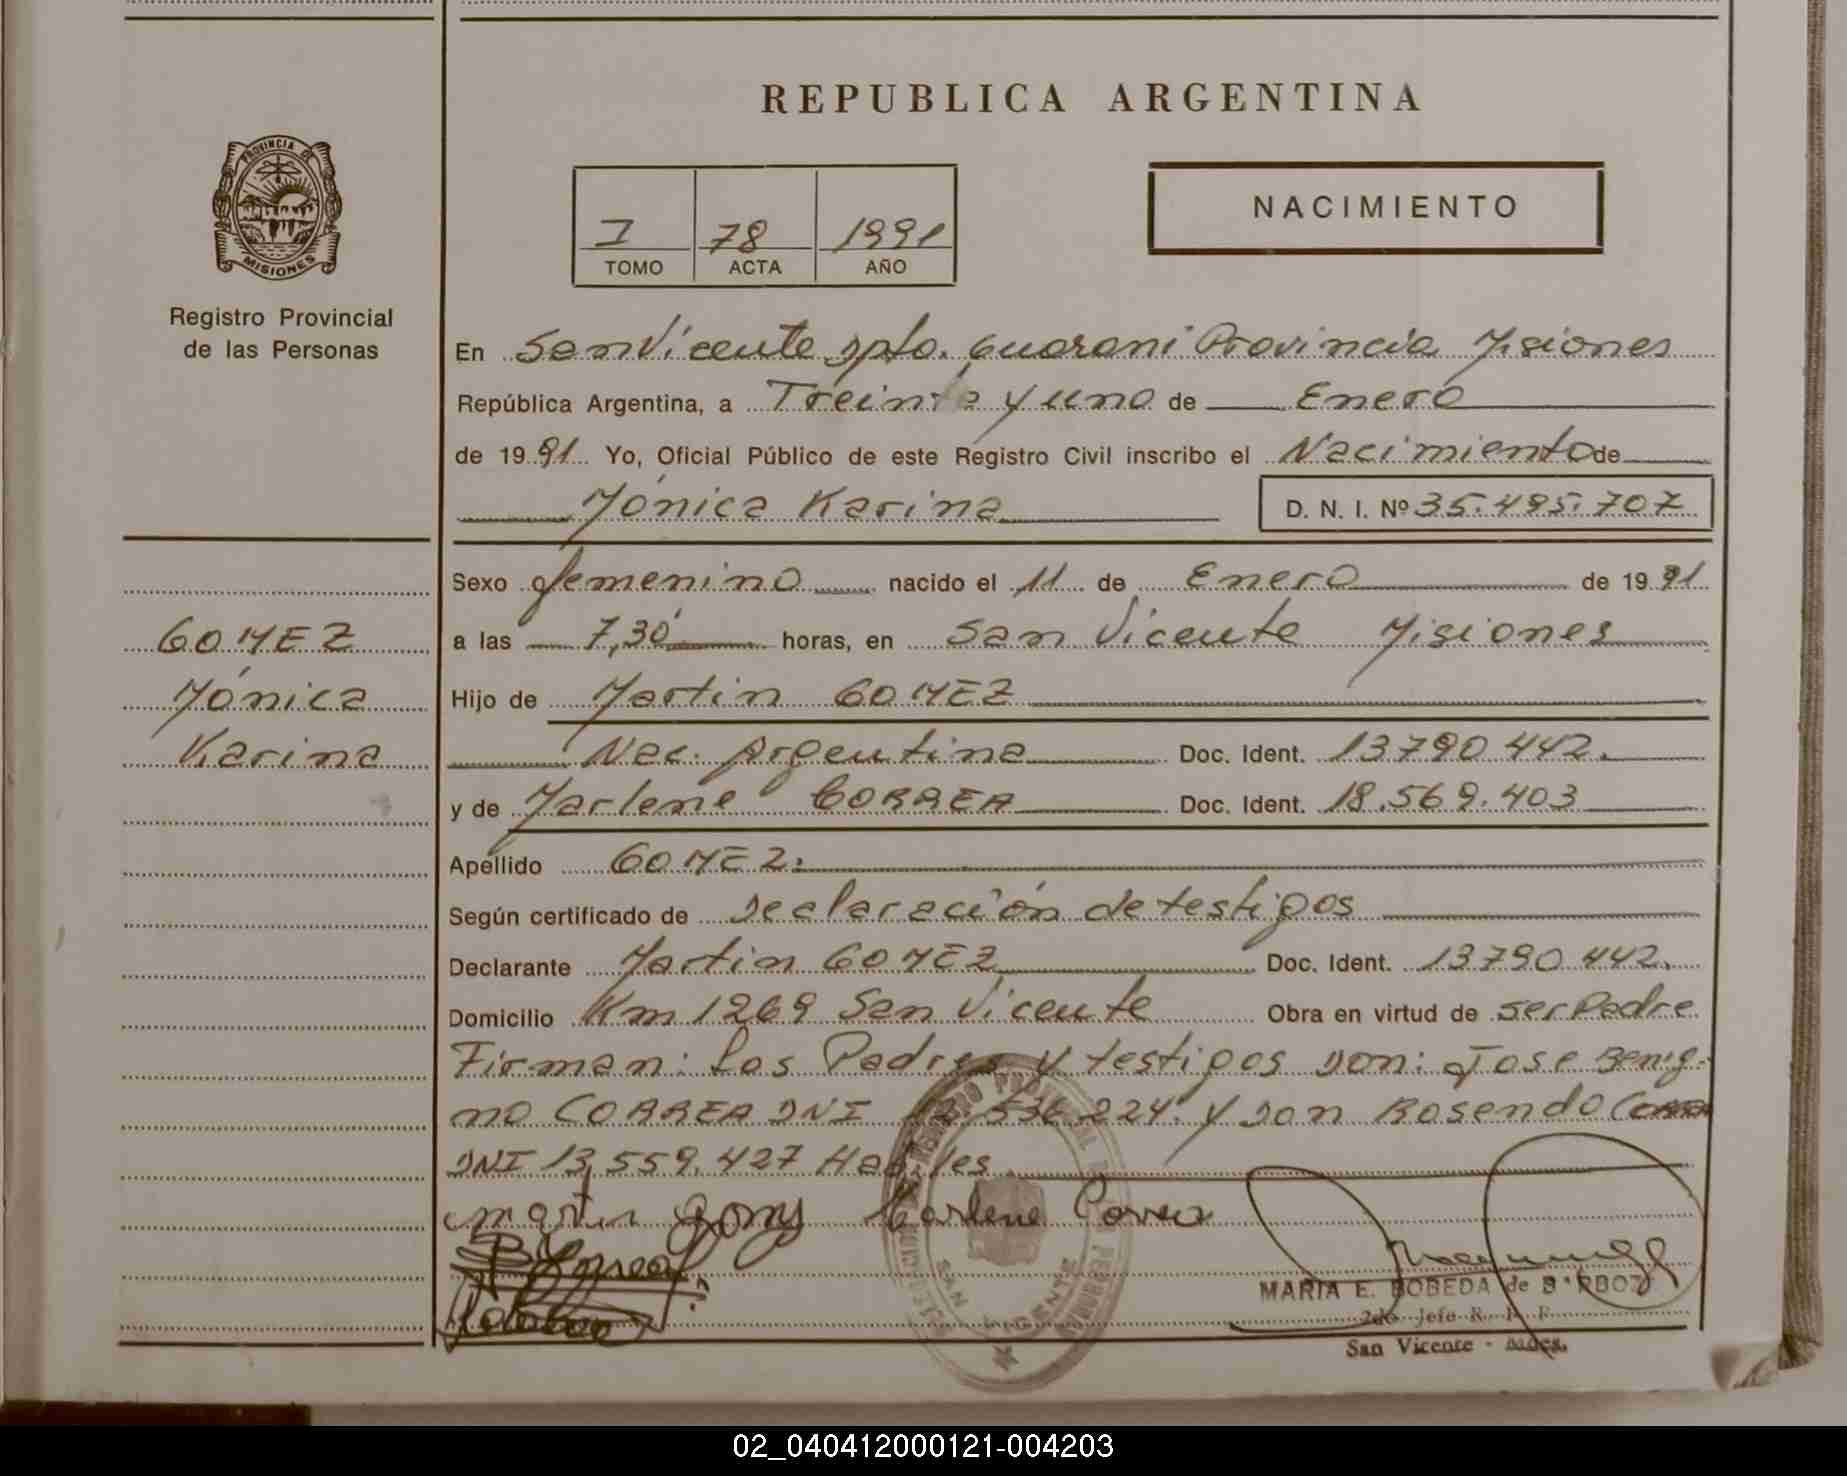 REPUBLICA ARGENTINA
PROVINCIA DE
MISIONES
Registro Provincial
de las Personas
I 78 1991
TOMO ACTA AÑO
NACIMIENTO
En San Vicente Dpto. Guarani Provincia Misiones
República Argentina, a Treinta y uno de Enero
de 1991 Yo, Oficial Público de este Registro Civil inscribo el Nacimiento de
Mónica Karina D. N. I. Nº 35.495.707
Sexo femenino nacido el 11 de Enero de 1991
GOMEZ
Mónica
Karina
a las 7,30 horas, en San Vicente Misiones
Hijo de Martin GOMEZ
Nac. Argentina Doc. Ident. 13790442.
y de Marlene CORREA Doc. Ident. 18.569.403
Apellido GOMEZ.
Según certificado de Declaración de testigos
Declarante Martin GOMEZ Doc. Ident. 13790442.
Domicilio Km 1269 San Vicente Obra en virtud de ser Padre
Firman: Los Padres y testigos Don: Jose Benig-
no CORREA DNI 536 224. y Don Rosendo Correa
DNI 13,559.427 Habiles
Martin Marlene Correa
MARIA E. BOBEDA de
2do. Jefe R. P. P.
San Vicente - Mnes.
02_040412000121-004203